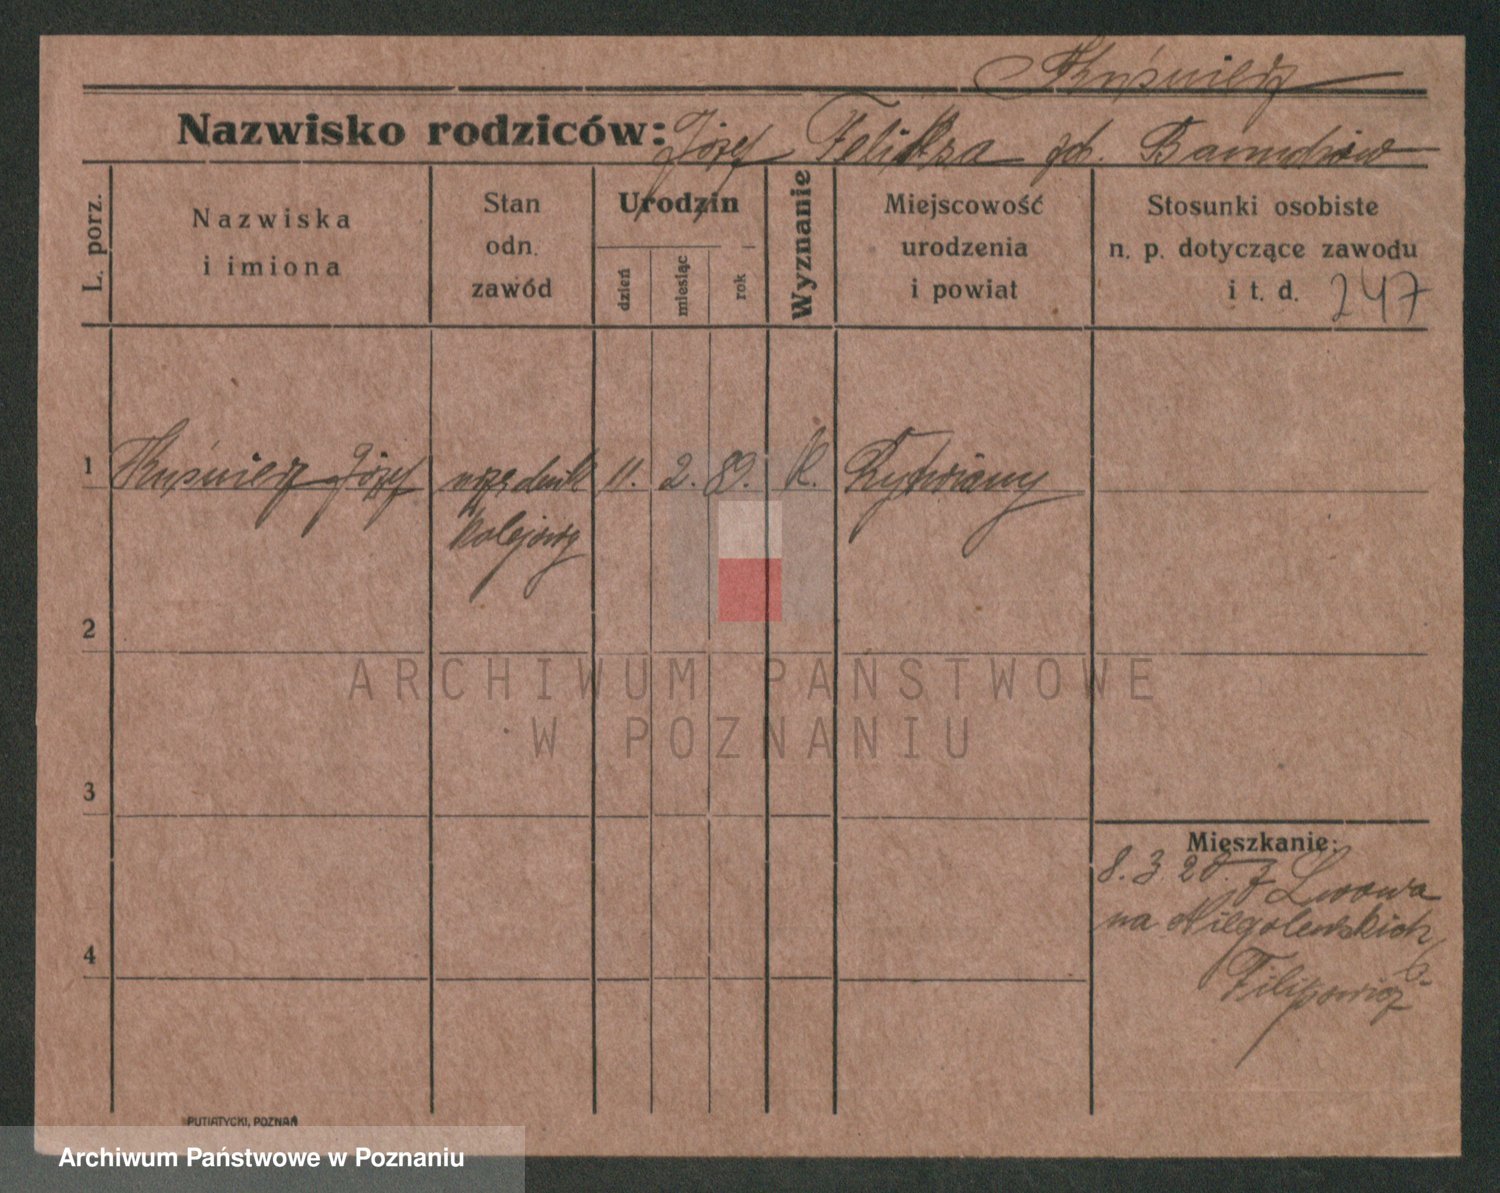 Kuśnierz
Nazwisko rodziców: Józef Feliksa
L. porz.
Nazwiska
i imiona
Stan
odn.
zawód
Urodzin
dzień
miesiąc
rok
Wyznanie
Miejscowość
urodzenia
i powiat
Stosunki osobiste
n. p. dotyczące zawodu
i t. d. 247
1 Kuśnierz Józef urzędnik 11. 2. 89. K. Rytwiany
kolejowy
2
3
4
Mieszkanie:
8. 3. 20. z Lwowa
na Niegolewskich
6.
Filipowicz
PUTIATYCKI, POZNAŃ
ARCHIWUM PAŃSTWOWE
W POZNANIU
Archiwum Państwowe w Poznaniu